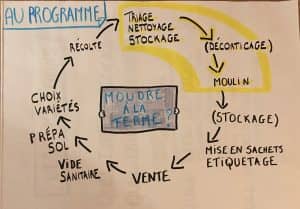 AU PROGRAMME
TRIAGE
NETTOYAGE
STOCKAGE
(DÉCORTICAGE)
MOULIN
(STOCKAGE)
MISE EN SACHETS
ETIQUETAGE
VENTE
VIDE
SANITAIRE
PRÉPA
SOL
CHOIX
VARIÉTÉS
RÉCOLTE
MOUDRE
À LA
FERME ?